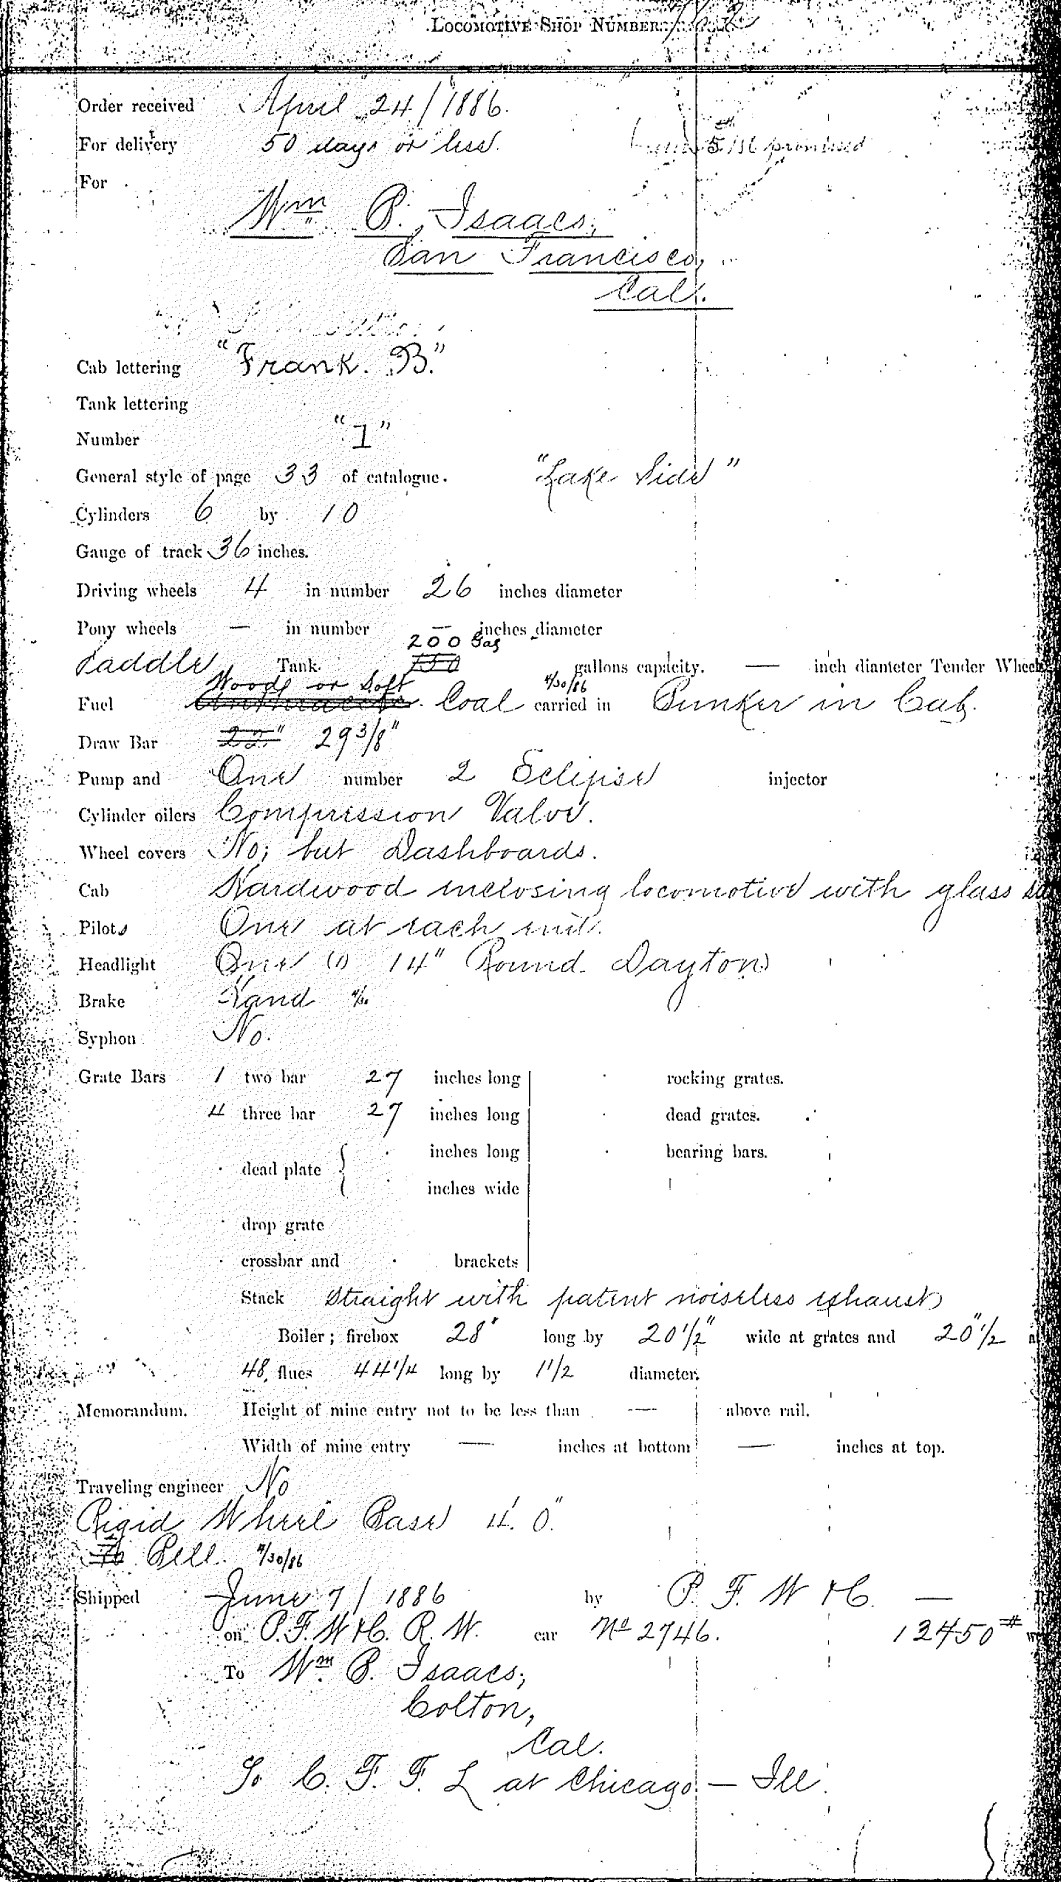 LOCOMOTIVE SHOP NUMBER
Order received April 24/1886.
For delivery 50 days or less. promised
For
Wm P. Isaacs,
San Francisco,
Cal.
Cab lettering "Frank. B."
Tank lettering
Number "1"
General style of page 33 of catalogue. "Lake Side"
Cylinders 6 by 10
Gauge of track 36 inches.
Driving wheels 4 in number 26 inches diameter
Pony wheels — in number — inches diameter
200 Gal
Saddle Tank. 150 gallons capacity. — inch diameter Tender Wheel
Wood or Soft 4/30/86
Fuel Anthracite. Coal carried in Bunker in Cab.
Draw Bar 22" 29 3/8"
Pump and One number 2 Eclipse injector
Cylinder oilers Compression Valve.
Wheel covers No; but Dashboards.
Cab Hardwood inclosing locomotive with glass
Pilots One at each end.
Headlight One (1) 14" Round Dayton
Brake Hand 4/30
Syphon No.
Grate Bars 1 two bar 27 inches long rocking grates.
4 three bar 27 inches long dead grates.
inches long bearing bars.
dead plate
inches wide
drop grate
crossbar and brackets
Stack Straight with patent noiseless exhaust
Boiler; firebox 28" long by 20 1/2" wide at grates and 20" 1/2
48 flues 44 1/4 long by 1 1/2 diameter.
Memorandum. Height of mine entry not to be less than — above rail.
Width of mine entry — inches at bottom — inches at top.
Traveling engineer No
Rigid Wheel Base 4' 0"
Bell. 4/30/86
Shipped June 7/1886 by P. F. W & C. —
on P. F. W & C. R. W. car No 2746. 12450#
To Wm P. Isaacs,
Colton,
Cal.
To C. F. F. L at Chicago — Ill.